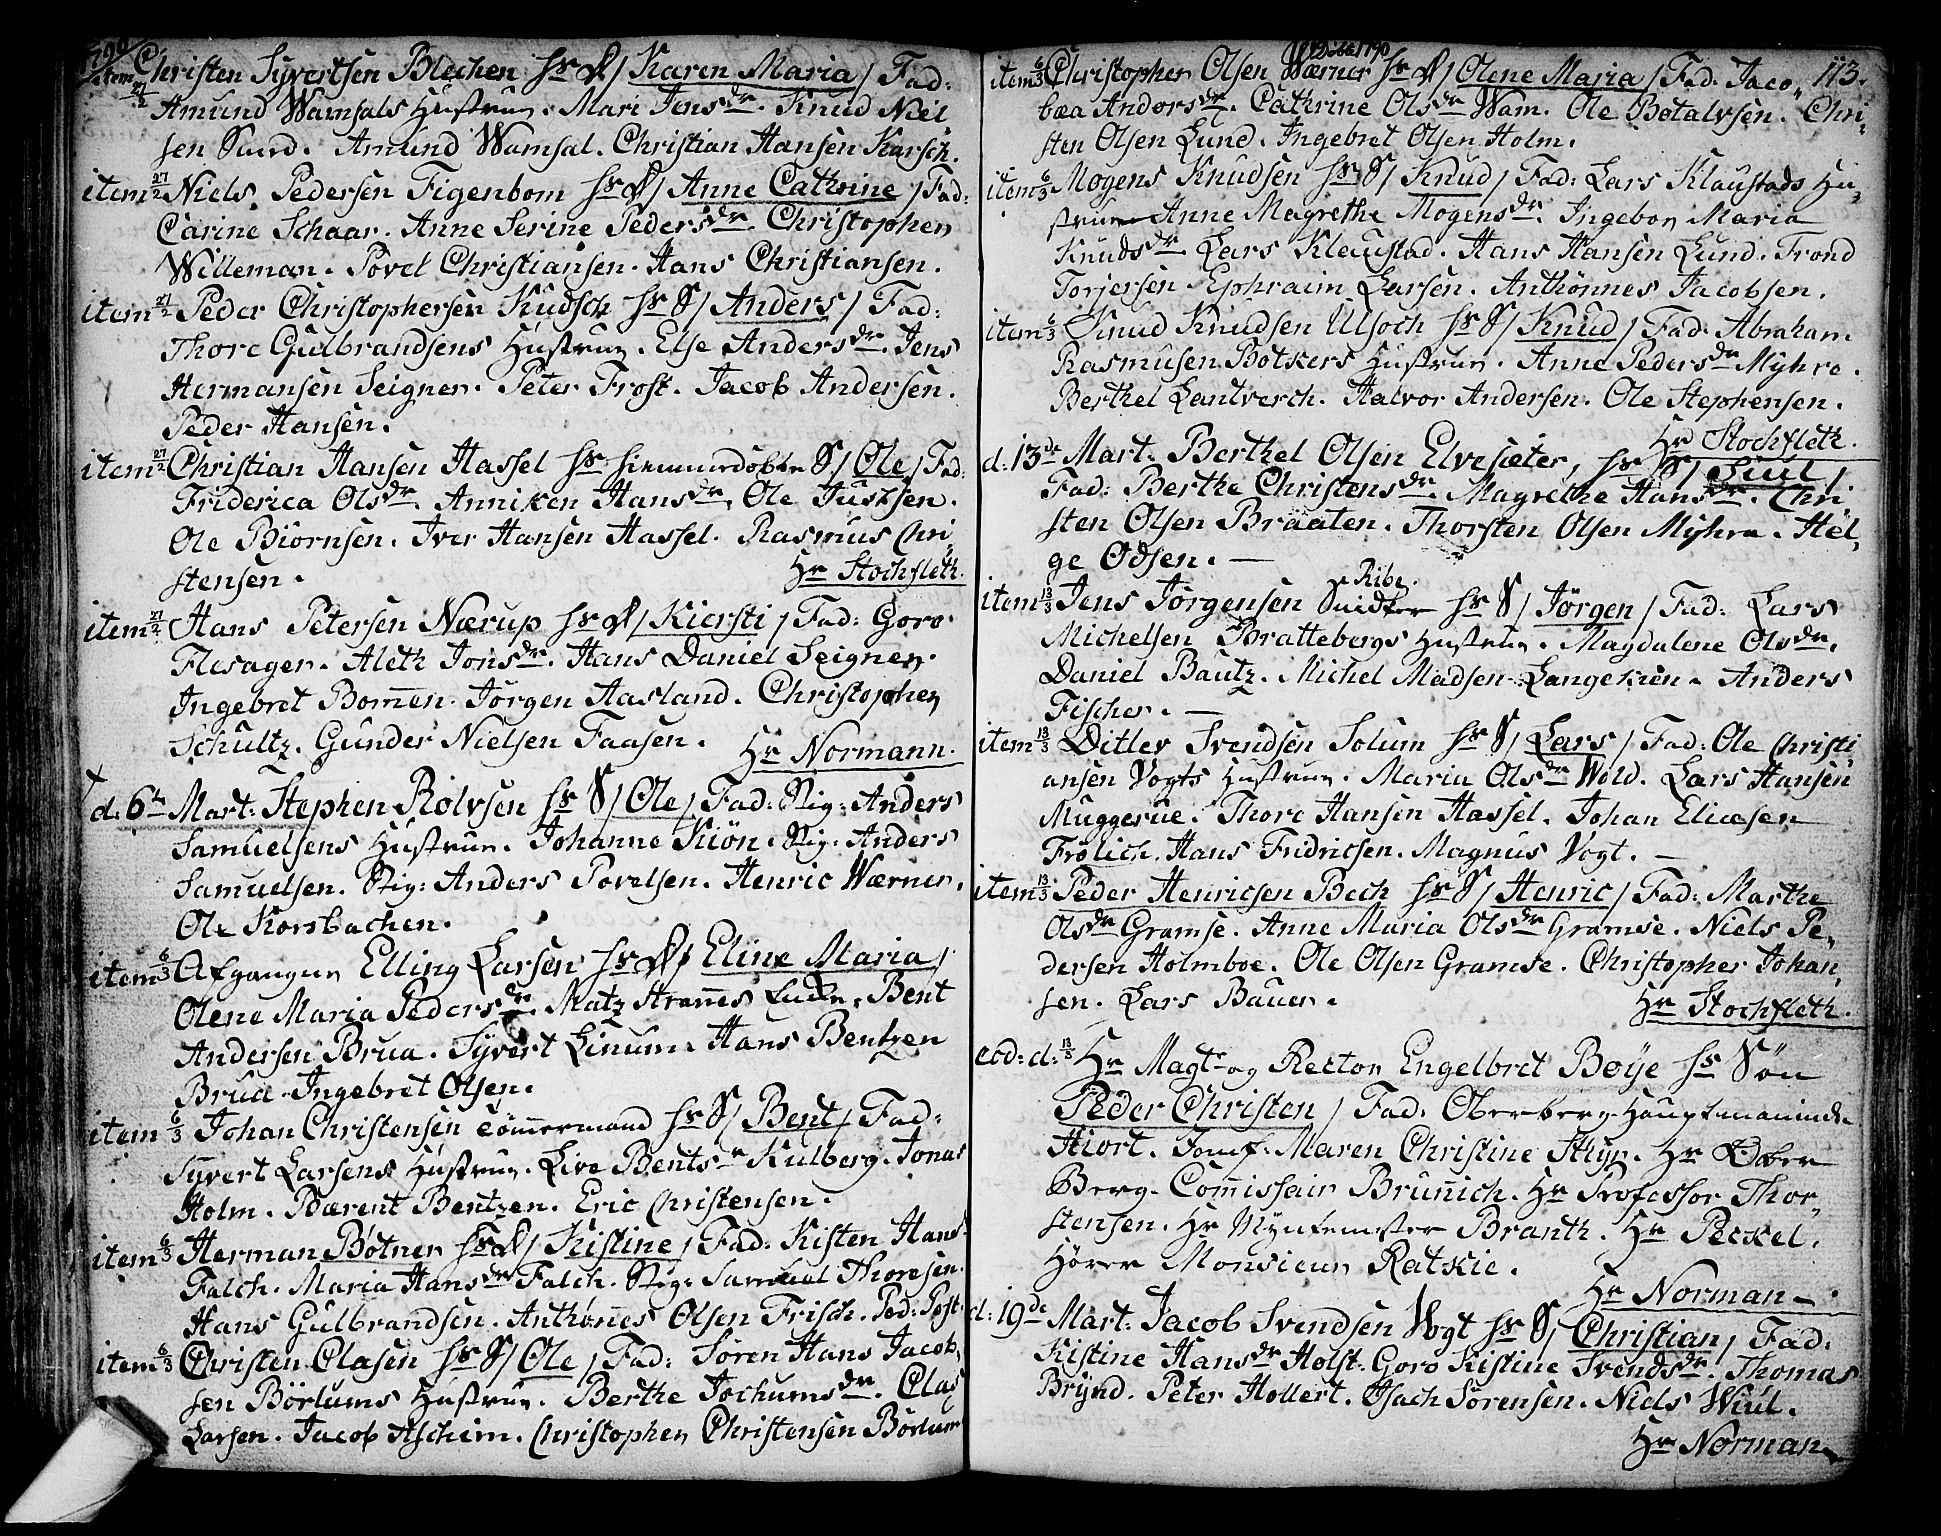 1790
item 27/2 Christen Syvertsen Blechen hs D/ Karen Maria / Fad:
Amund Wamsals Hustrue. Mari Jensdr. Knud Niel
sen Sund. Amund Wamsal. Christian Hansen Karsch.
item 27/2 Niels Pedersen Figenbom hs D/ Anne Cathrine / Fad:
Carine Schaar. Anne Serine Pedersdr. Christopher
Willeman. Povel Christiansen. Hans Christiansen.
item 27/2 Peder Christophersen Kudsch hs S/ Anders / Fad:
Thore Gulbrandsens Hustrue. Else Andersdr. Jens
Hermansen Seigner. Peter Frost. Jacob Andersen.
Peder Hansen.
item 27/2 Christian Hansen Hassel hs hiemmedøbte S/ Ole / Fad:
Friderica Olsdr. Anniken Hansdr. Ole Justsen.
Ole Biørnsen. Iver Hansen Hassel. Rasmus Chri
stensen. Hr Stochfleth.
item 27/2 Hans Petersen Nærup hs D/ Kiersti / Fad: Goro
Flesager. Aleth Jonsdr. Hans Daniel Seigner.
Ingebret Bom̅en. Jørgen Aasland. Christopher
Schultz. Gunder Nielsen Faasen. Hr Normann.
d: 6te Mart: Stephen Rolvsen hs S/ Ole / Fad: Stig: Anders
Samuelsens Hustrue. Johanne Kiøn. Stig: Anders
Samuelsen. Stig: Anders Povelsen. Henric Wærner.
Ole Korsbachen.
item 6/3 Afgangne Elling Larsen hs D/ Eline Maria /
Olene Maria Pedersdr. Matz Strøm̅es Bent
Andersen Brua. Syvert Linum. Hans Bentzen
Brua. Ingebret Olsen.
item 6/3 Johan Christensen Tøm̅ermand hs S/ Bent / Fad:
Syvert Larsens Hustrue. Live Bentsdr Kulberg. Jonas
Holm. Bærent Bentzen. Eric Christensen.
item 6/3 Herman Bøtner hs D/ Kistine / Fad: Kisten Hans
Falch. Maria Hansdr Falch. Stig: Samuel Thoresen.
Hans Gulbrandsen. Anthøn̅es Olsen Frisch. Ped: Post.
item 6/3 Christen Clasen hs S/ Ole / Fad: Søren Hans Jacob
sen Børlums Hustrue. Berthe Jochumsdr. Clas
Larsen. Jacob Aschim. Christopher Christensen Børlum
1790 113.
item 6/3 Christopher Olsen Wærner hs D/ Olene Maria / Fad: Jaco„
bæa Andorsdr. Cathrine Olsdr Wam. Ole Botalvsen. Chri„
sten Olsen Lund. Ingebret Olsen Holm.
item 6/3 Mogens Knudsen hs S/ Knud / Fad: Lars Klaustads Hu„
strue Anne Magrethe Mogensdr. Ingebor Maria
Knudsdr. Lars Klaustad. Hans Hansen Lund. Trond
Torjersen. Ephraim Larsen. Anthønnes Jacobsen.
item 6/3 Knud Knudsen Ulsoch hs S/ Knud / Fad: Abraham
Rasmusen Botkers Hustrue. Anne Pedersdr Myhre.
Berthel Lantverch. Halvor Andersen. Ole Stephensen.
Hr Stochfleth.
d: 13de Mart: Berthel Olsen Elvesæter, hs S/ Siul /
Fad: Berthe Christensdr. Magrethe Hansdr. Chri
sten Olsen Braaten. Thorsten Olsen Myhra. Hel„
ge Odsen. —
item 13/3 Jens Jørgensen Ribe. hs S/ Jørgen / Fad: Lars
Michelsen Brattebergs Hustrue. Magdalene Olsdr.
Daniel Bautz. Michel Madsen Langekien. Anders
Fischer. —
item 13/3 Ditlev Svendsen Solum hs S/ Lars / Fad: Ole Christi
ansen Vogts Hustrue. Maria Olsdr Wold. Lars Hansen
Muggerue. Thore Hansen Hassel. Johan Eliæsen
Frølich. Hans Fridricsen. Magnus Vogt. —
item 13/3 Peder Henricsen Bech hs S/ Henric / Fad: Marthe
Olsdr Gramse. Anne Maria Olsdr Gramse. Niels Pe„
dersen Holmboe. Ole Olsen Gramse. Christopher Johan„
sen. Lars Bauer. Hr Stochfleth.
eod: d: 13/3 Hr Magr og Rector Engelbret Boye hs Søn
Peder Christen / Fad: Oberberg Hauptmaninde
Hiort. Jomf. Maren Christine Stup. Hr Ober
Berg Com̅issair Brün̅ich. Hr Professor Thor„
stensen. Hr Myntemester Branth. Hr Peckel.
Hører Monsieur Ratkie.
Hr Norman.
d: 19de Mart: Jacob Svendsen Vogt hs S/ Christian / Fad:
Kistine Hansdr Holst. Goro Kistine Svendsdr. Thomas
Brynd. Peter Hollert. Isach Sørensen. Niels Wiul.
Hr Norman